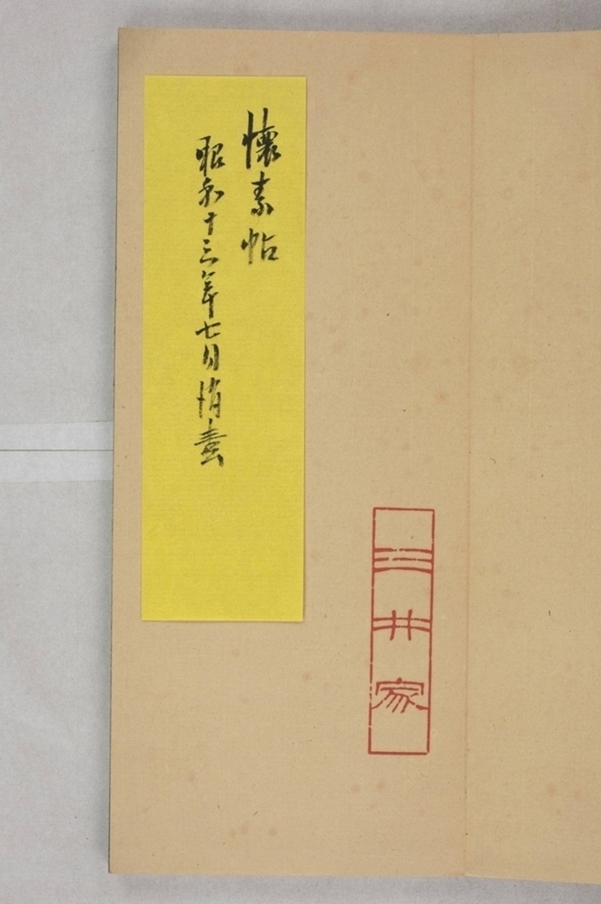 懐素帖
昭和十三年七月消毒
三井家